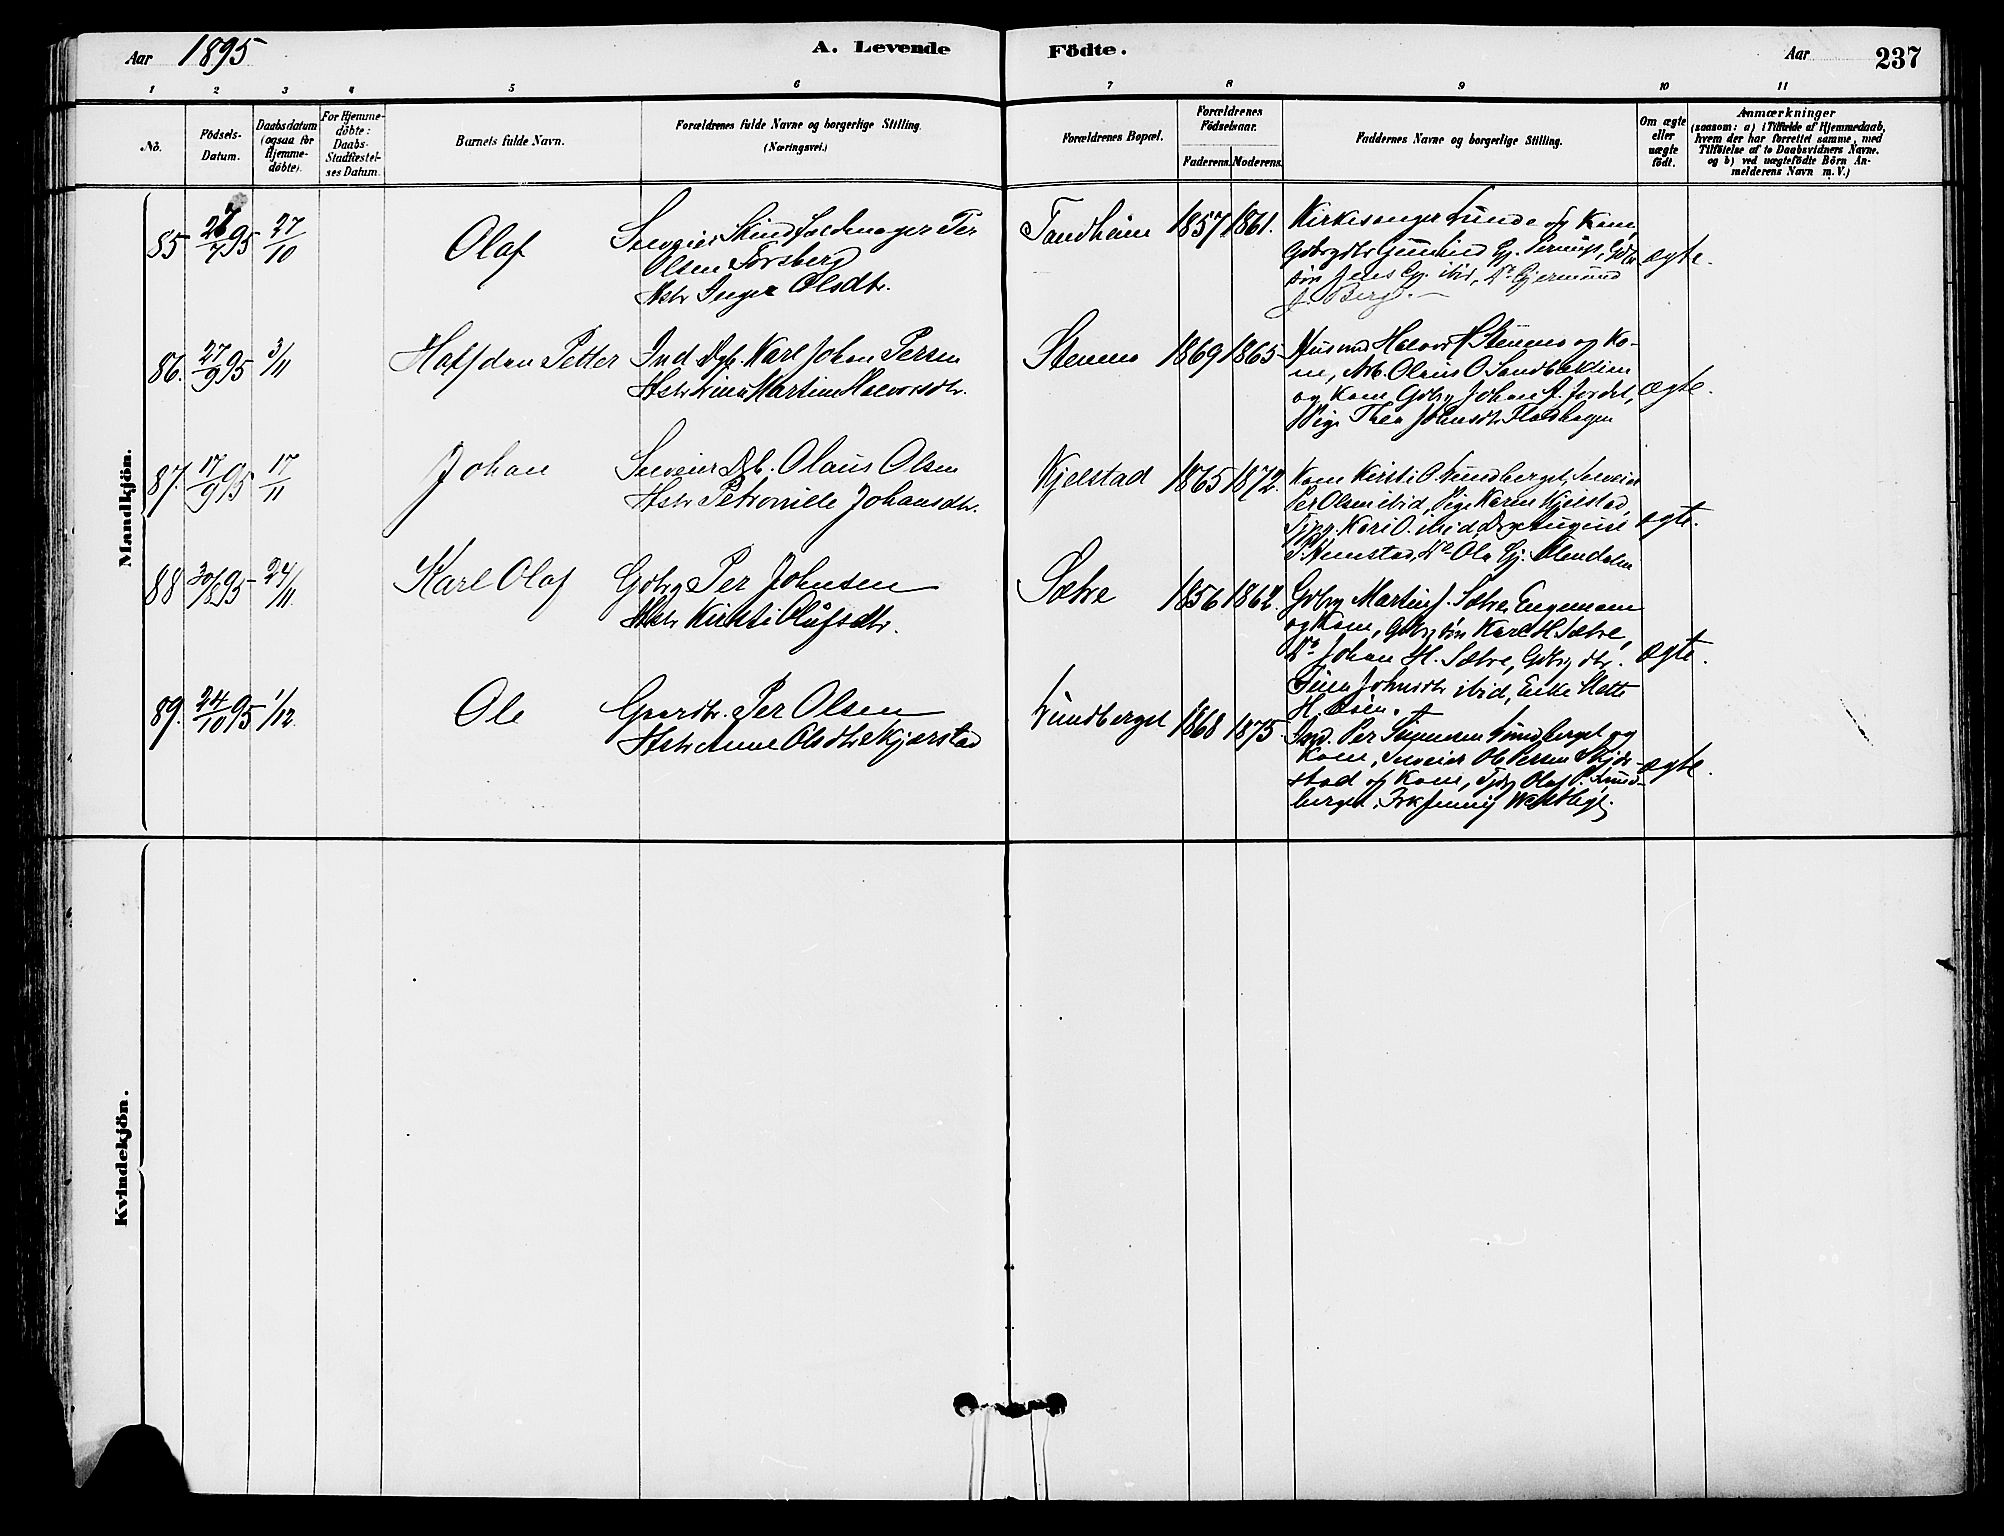 Aar 1895
A. Levende Födte.
Aar 237
1 2 3 4 5 6 7 8 9 10 11
No.
Födsels-
Datum.
Daabsdatum
(ogsaa for
Hjemme-
döbte).
For Hjemme-
döbte:
Daabs-
Stadfæstel-
ses Datum.
Barnets fulde Navn.
Forældrenes fulde Navne og borgerlige Stilling.
(Næringsvei.)
Forældrenes Bopæl.
Forældrenes
Födselsaar.
Faderens. Moderens.
Faddernes Navne og borgerlige Stilling.
Om ægte
eller
uægte
födt.
Anmærkninger
(saasom: a) i Tilfælde af Hjemmedaab,
hvem der har forrettet samme, med
Tilföielse af to Daabsvidners Navne.
og b) ved uægtefödte Börn An-
melderens Navn m. V.)
Mandkjön.
85 26/7 95 27/10 Olaf
Selveier Skindfældmager Per
Olsen Forsberg
Hstr Inger Olsdtr.
Sandheim 1857 1861.
Kirkesanger Lunde og Kone,
Gbrgdtr Gunhild Gj.
Jens Gj. ibid, Do Gjermund
J. Berg.
ægte.
86. 27/9 95 3/11 Halfdan Petter
Ind Dgb. Karl Johan Persen
Hstr Lina Martine Halvorsdtr.
Stemmo 1869 1865
Husmd Halvor H Stemmo og Ko-
ne, Arb. Olaus O Sandbakken
og Kone Gbrg Johan A. Jordet,
Pige Thea Johnsdtr Fladhagen
ægte.
87. 17/9 95 17/11 Johan
Selveier Dgb. Olaus Olsen
Hstr Petronille Johansdtr.
Kjelstad 1865 1872.
Kone Kirsti O. Lundberget, Selveier
Per Olsen ibid, Pige Karen Kjelstad,
Kari O. ibid
Do Ola Gj.
ægte.
88 30/8 95 24/11 Karl Olaf
Gbrg Per Johnsen
Hstr Kirsti Olufsdtr.
Sætre 1856 1862.
Gbrg Martin J. Sætre, Engemoen
og Kone, Gbrg sön Karl H. Sætre,
Do Johan H. Sætre, Gbrg dtr.
Johnsdtr ibid, Enke Mette
H.
ægte.
89. 24/10 95 1/12. Ole
Gaardbr. Per Olsen
Hstr Anne Olsdtr Skjærstad
Lundberget 1868 1875.
Per Lundberget og
Kone, Selveier Ole Persen Skjær-
stad og Kone, Olaf P. Lund-
berget. Frk Jenny
ægte.
Kvindekjön.